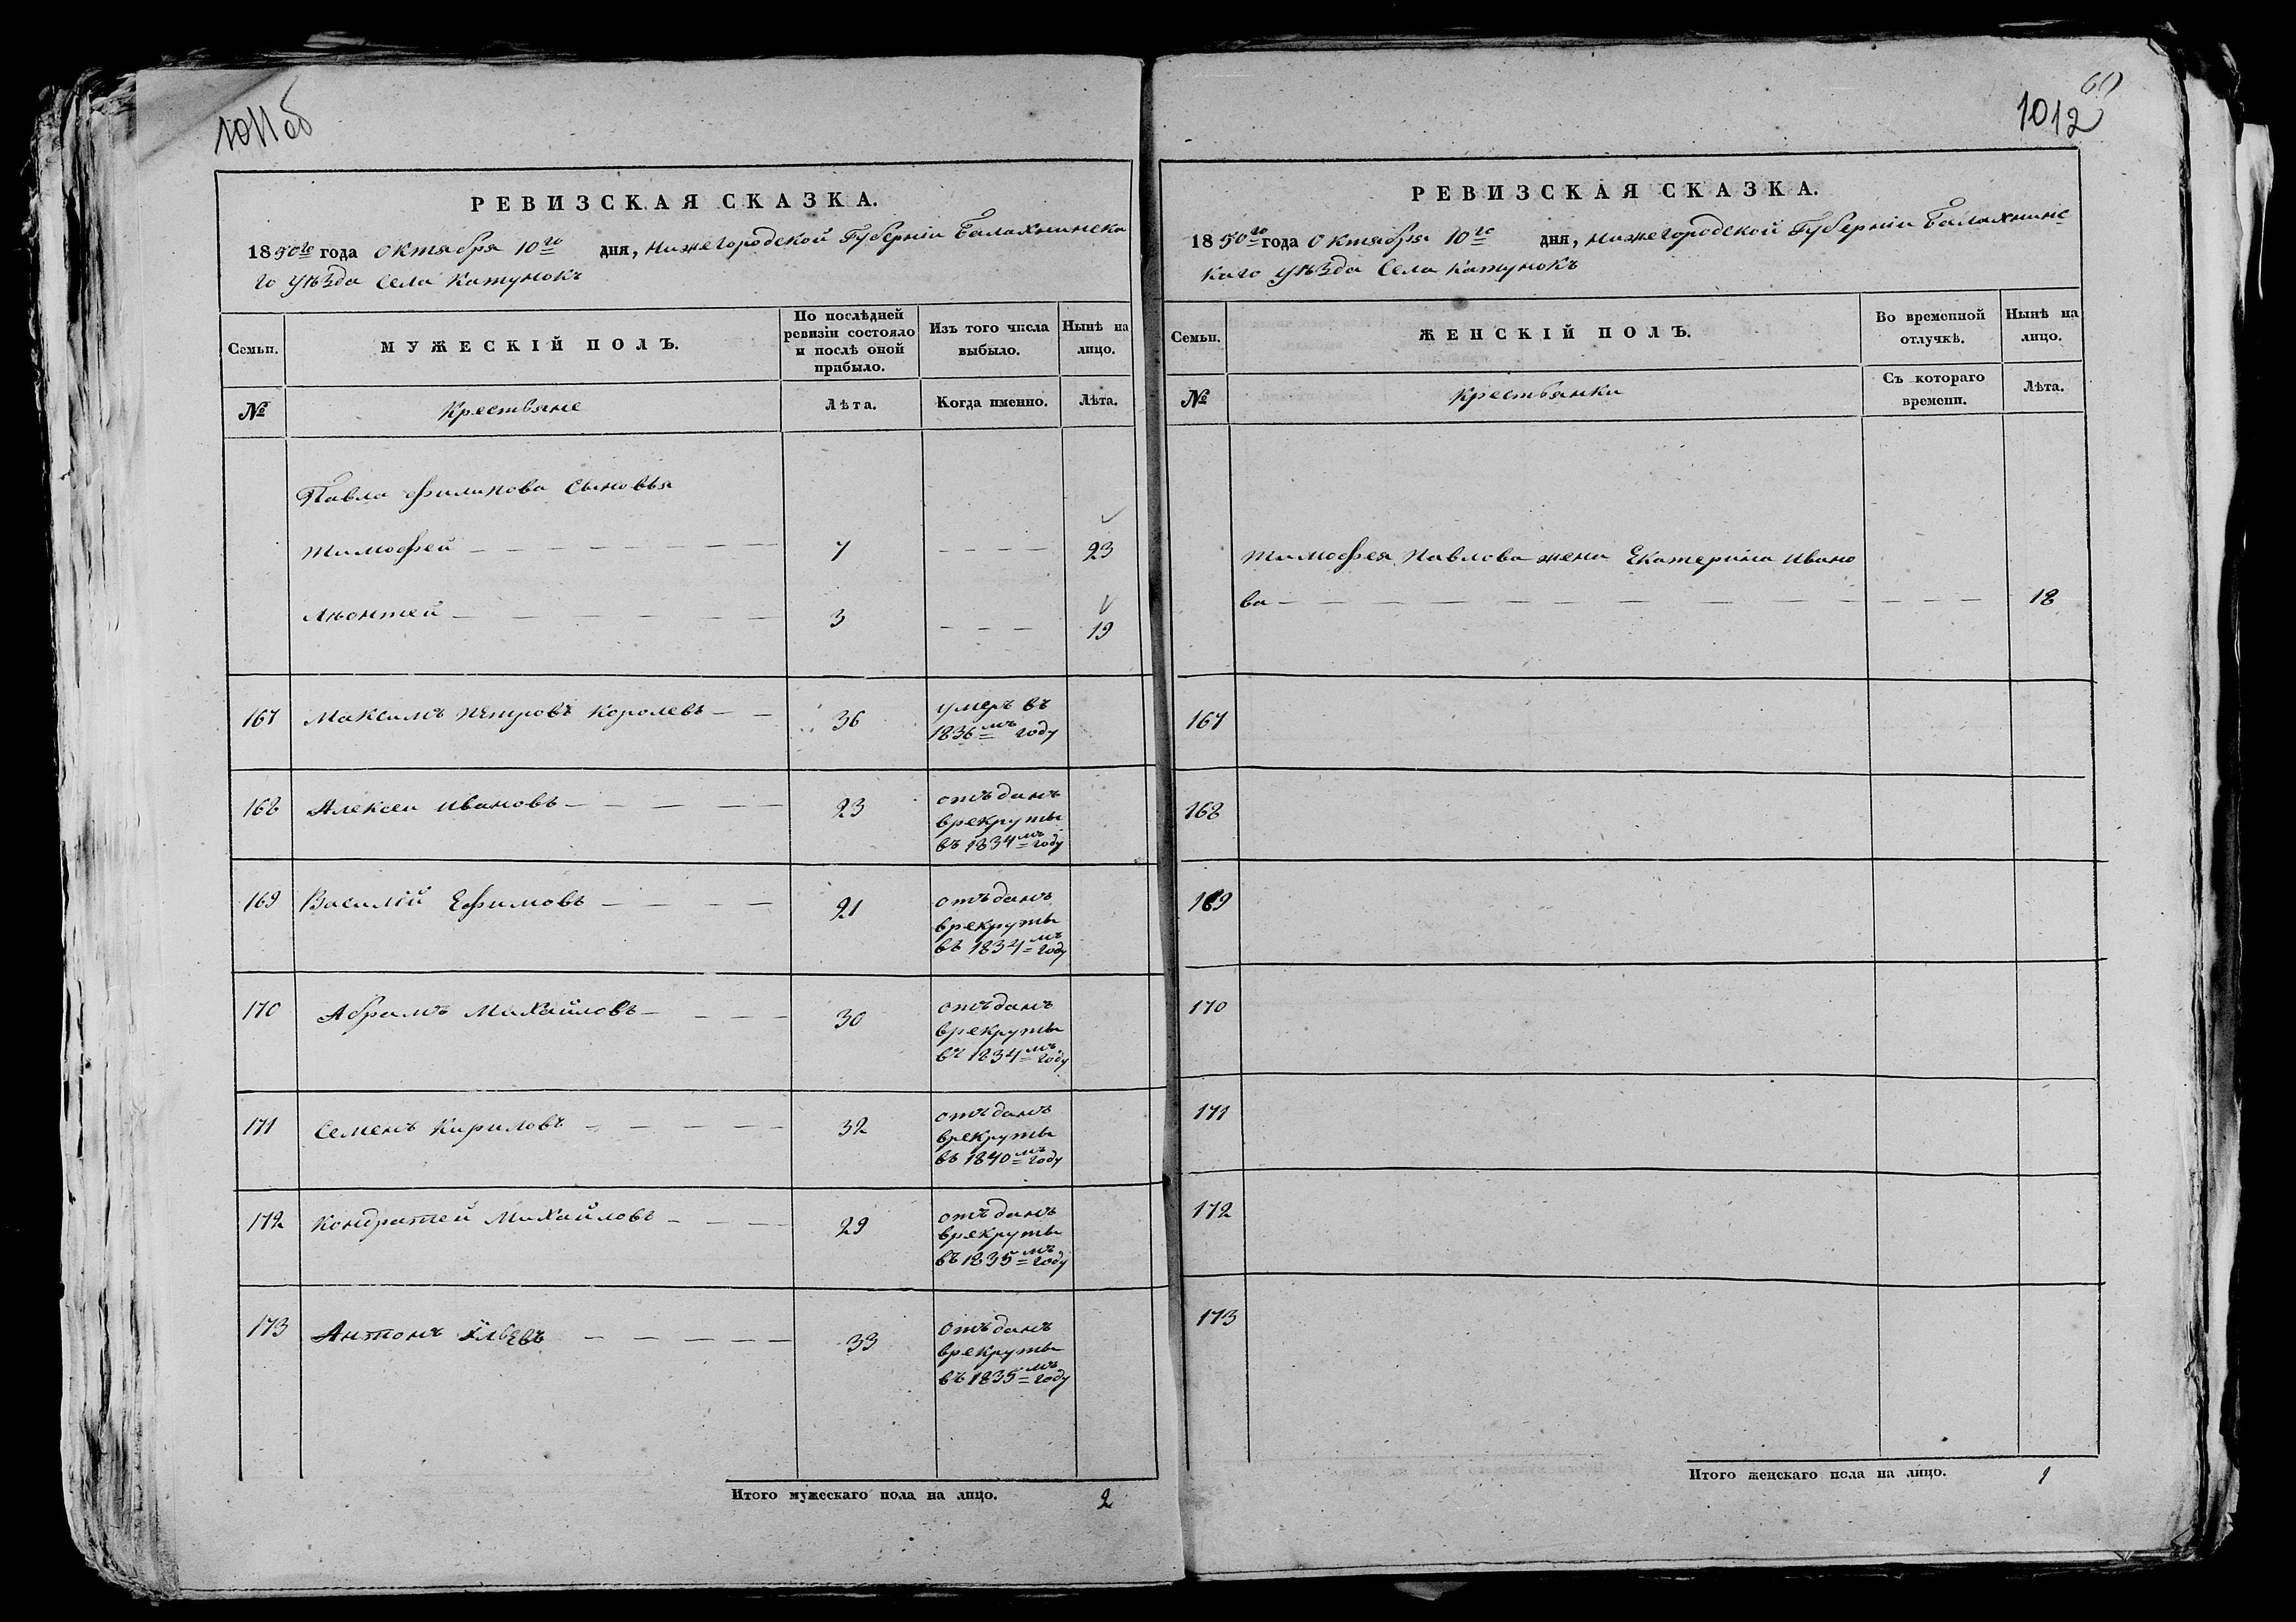 1011об
РЕВИЗСКАЯ СКАЗКА.
1850го года Октября 10го дня, Нижегородской Губерніи Балахнинска
го уѣзда Села Катунокъ
Семьи.
МУЖЕСКІЙ ПОЛЪ.
По послѣдней
ревизіи состояло
и послѣ оной
прибыло.
Изъ того числа
выбыло.
Нынѣ на
лицо.
№
Крестьяне
Лѣта.
Когда именно.
Лѣта.
Павла Филипова Сыновья
Тимофей — — — — — — — — 7 — — — — 23
Лѣонтей — — — — — — — 3 — — — 19
167 Максимъ Пѣтровъ Королевъ — — 36 умеръ въ
1836мъ году
168 Алексеи Ивановъ — — — — — 23 отъданъ
врекруты
въ 1834мъ году
169 Василій Ефимовъ — — — — 21 отъданъ
врекруты
въ 1834мъ году
170 Абрамъ Михайловъ — — — — 30 отъданъ
врекруты
въ 1834мъ году
171 Семенъ Кириловъ — — — — — 32 отъданъ
врекруты
въ 1840мъ году
172 Кондратей Михайловъ — — — — 29 отъданъ
врекруты
въ 1835мъ году
173 Антонъ — — — — — 33 отъданъ
врекруты
въ 1835мъ году
Итого мужескаго пола на лицо. 2
1012
РЕВИЗСКАЯ СКАЗКА.
1850го года Октября 10го дня, Нижегородской Губерніи Балахнинс
каго уѣзда Села Катунокъ
Семьи.
ЖЕНСКІЙ ПОЛЪ.
Во временной
отлучкѣ.
Нынѣ на
лицо.
№
Крестьянки
Съ котораго
времени.
Лѣта.
Тимофея Павлова жена Екатерина Ивано
ва — — — — — — — — — — — — — 18
167
168
169
170
171
172
173
Итого женскаго пола на лицо. 1